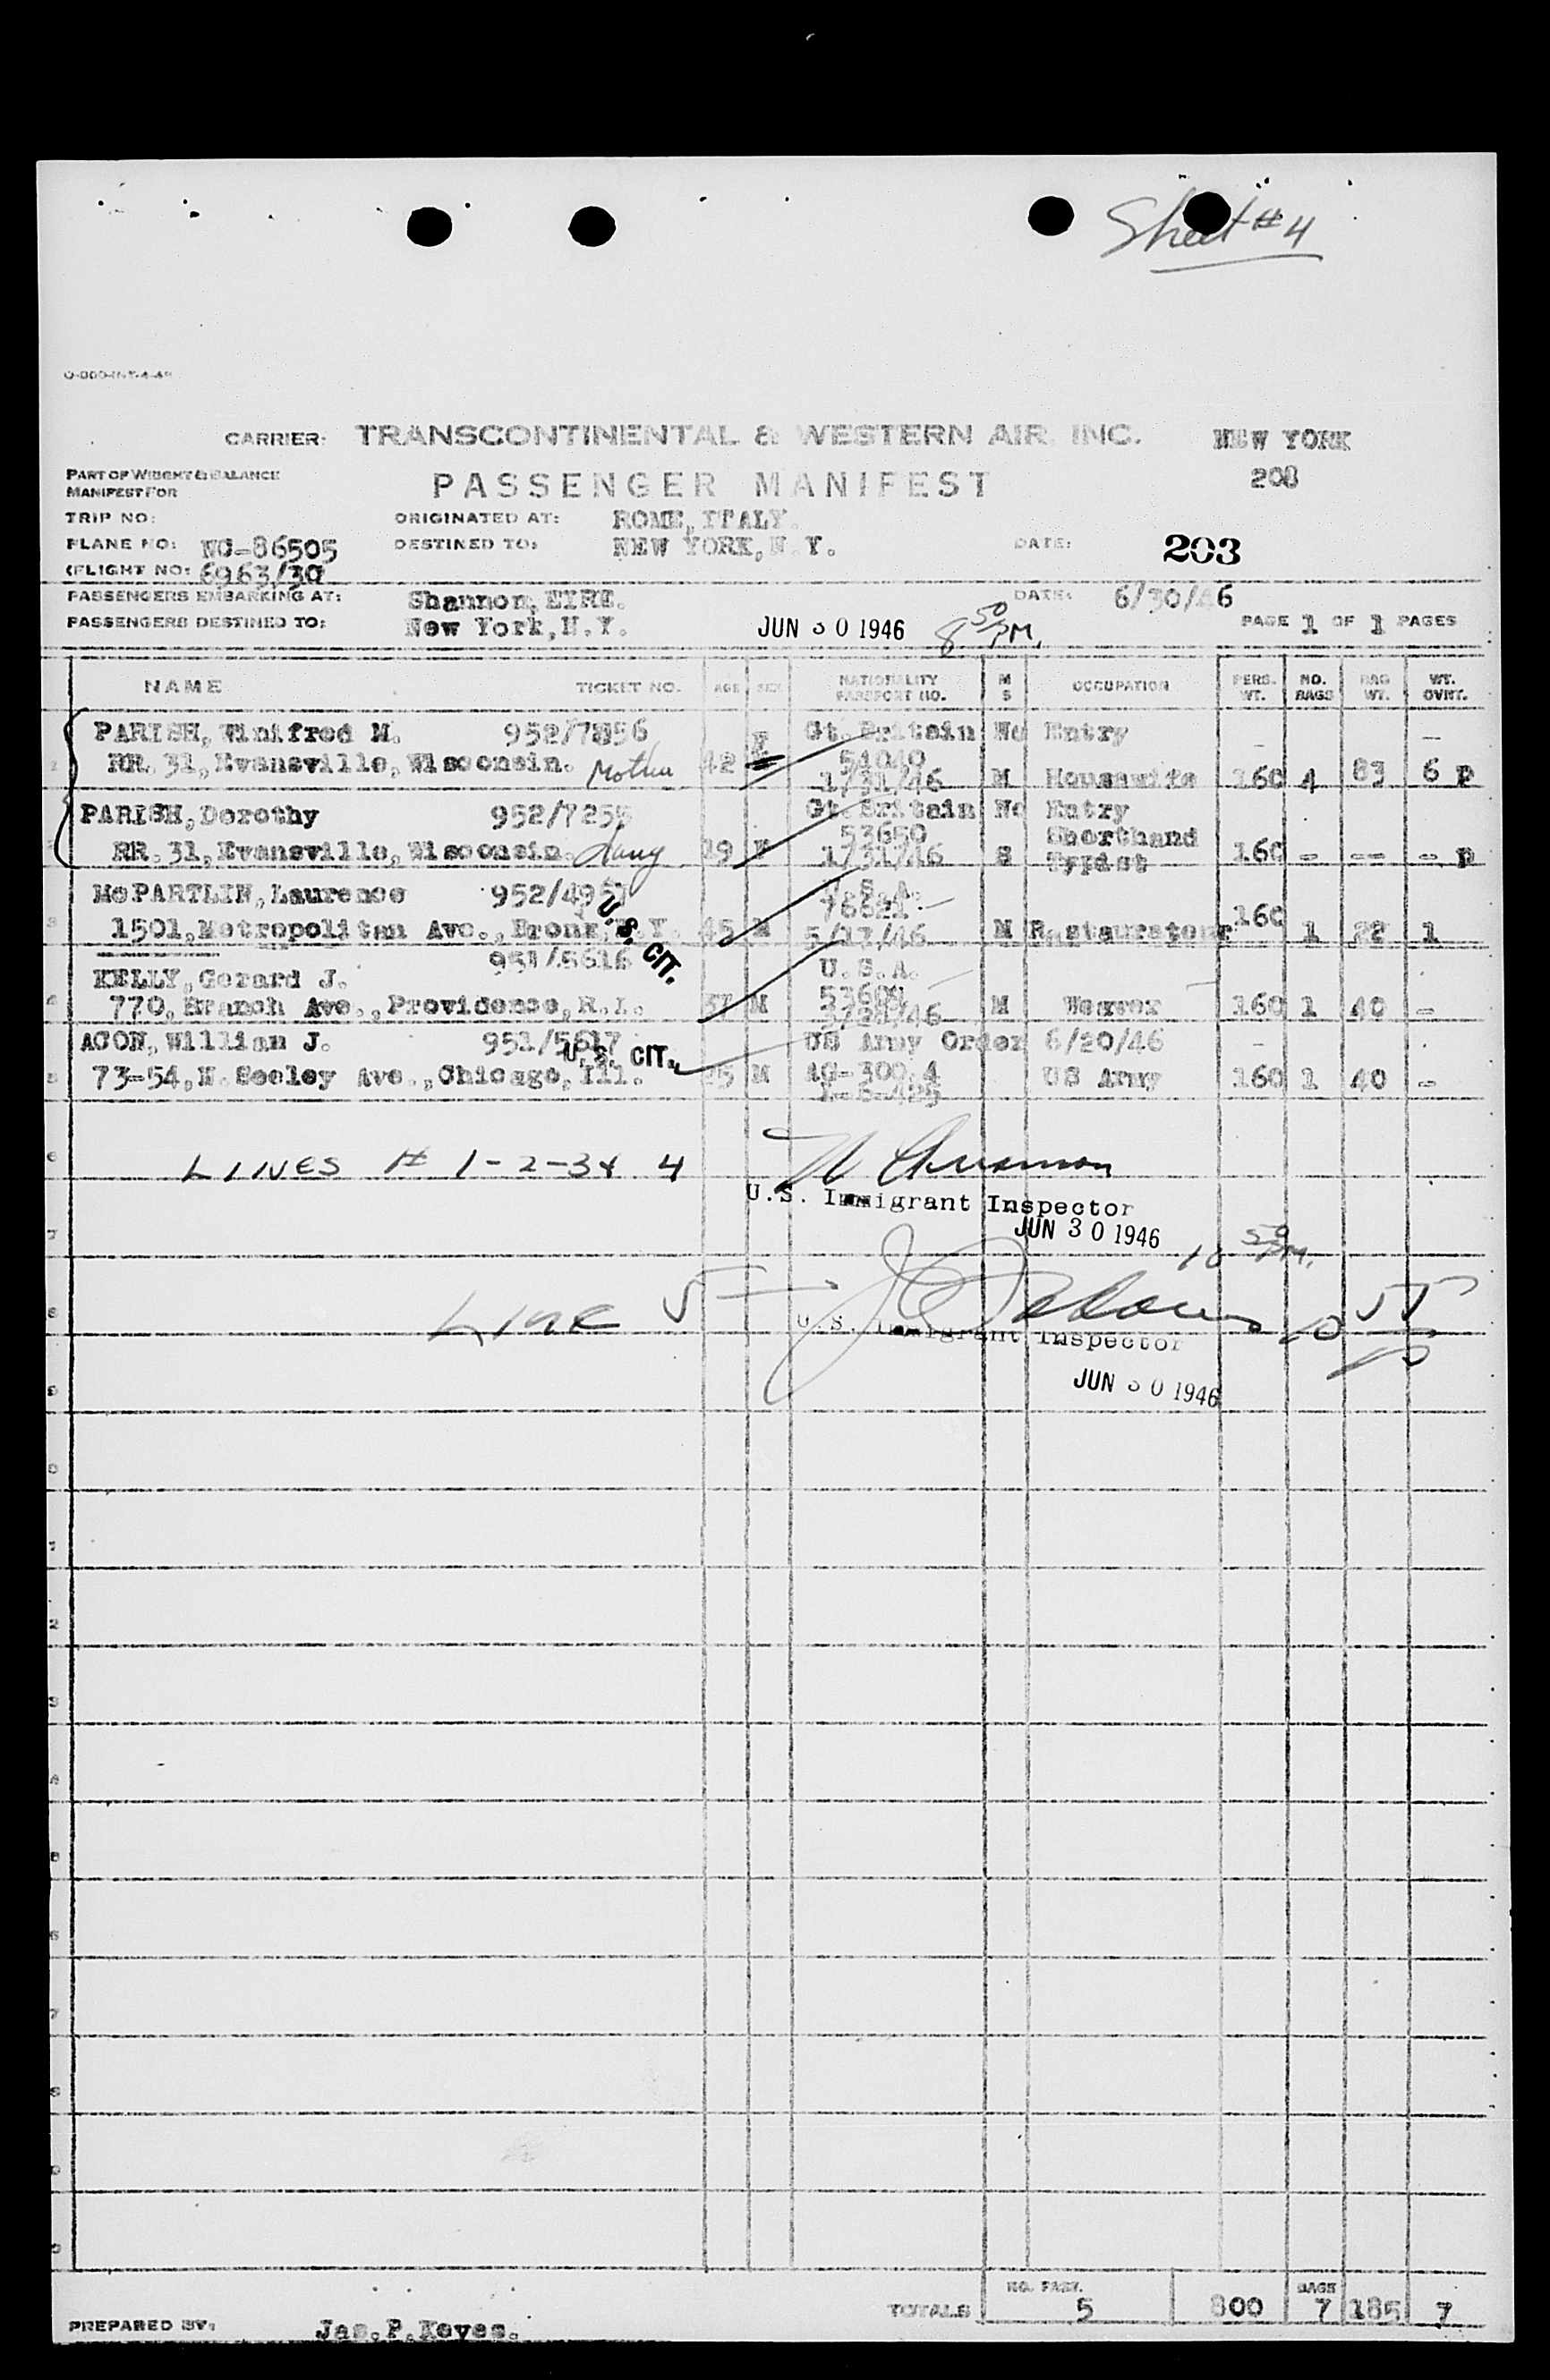 Sheet #4
CARRIER: TRANSCONTINENTAL & WESTERN AIR, INC. NEW YORK
PART OF WEIGHT & BALANCE
MANIFEST FOR
PASSENGER MANIFEST 208
TRIP NO: ORIGINATED AT: ROME, ITALY.
PLANE NO: NC-86505 DESTINED TO: NEW YORK, N.Y. DATE: 203
(FLIGHT NO: 6963/30
PASSENGERS EMBARKING AT: Shannon, EIRE. DATE: 6/30/46
PASSENGERS DESTINED TO: New York, N.Y. JUN 30 1946 8 50 PM. PAGE 1 OF 1 PAGES
NAME TICKET NO. AGE SEX NATIONALITY PASSPORT NO. M S OCCUPATION PERS. WT. NO. BAGS BAG WT. WT. OVRT.
PARISH, Winifred M. 952/7856 F Gt. Britain No Entry
RR. 31, Evansville, Wisconsin. Mother 42 51040
1/31/46 M Housewife 160 4 83 6 P
PARISH, Dorothy 952/7255 Gt. Britain No Entry
53650 Shorthand
RR. 31, Evansville, Wisconsin. 19 F 1/31/46 S Typist 160 - -- - P
McPARTLIN, Laurence 952/4957 U.S.A.
76621
1501, Metropolitan Ave., Bronx, N.Y. U.S. CIT. 45 M 5/17/46 M Restaurateur 160 1 22 1
951/5616 U.S.A.
KELLY, Gerard J. 53609
770, Branch Ave., Providence, R.I. 37 M 3/28/46 M Weaver 160 1 40 -
ACON, William J. 951/5617 US Army Order 6/20/46
U.S. CIT.
73-54, N. Seeley Ave., Chicago, Ill. 25 M AG-300.4 US Army 160 1 40 -
LINES # 1-2-3 & 4
U.S. Immigrant Inspector
JUN 30 1946 10 50 PM.
Line 5
U.S. Immigrant Inspector 10 55 P
JUN 30 1946
NO. PASR. BAGS
TOTALS 5 800 7 185 7
PREPARED BY: Jas. P. Keyes.